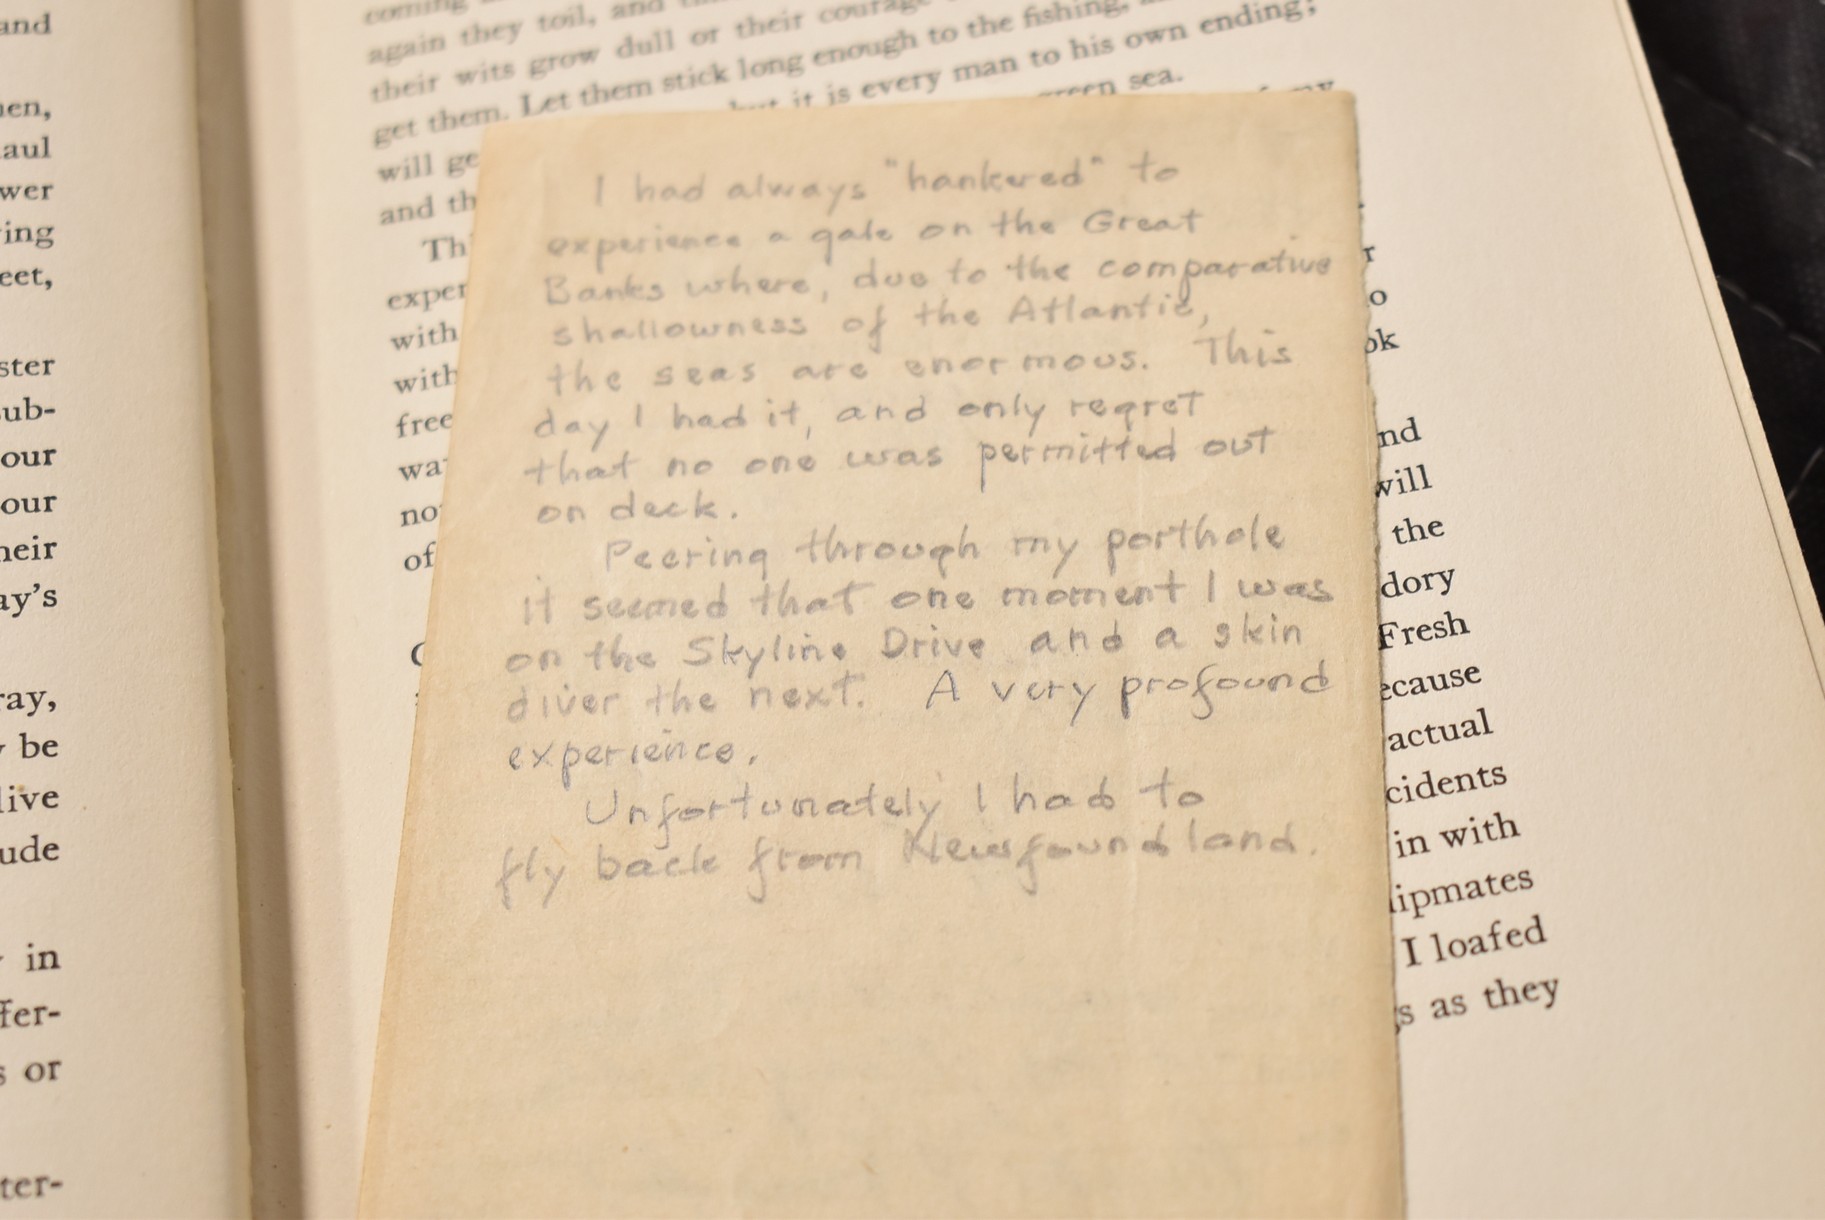 and
men,
haul
wer
ving
eet,
ster
sub-
our
our
heir
ay's
ray,
y be
live
ude
y in
ffer-
s or
ter-
coming
again they toil, and
their wits grow dull or their courage
get them. Let them stick long enough to the fishing,
will ge but it is every man to his own ending;
and th green sea.
Thi of my
exper
with r
with o
free ok
wa
no nd
of will
the
dory
Fresh
ecause
actual
cidents
in with
ipmates
I loafed
gs as they
I had always "hankered" to
experience a gale on the Great
Banks where, due to the comparative
shallowness of the Atlantic,
the seas are enormous. This
day I had it, and only regret
that no one was permitted out
on deck.
Peering through my porthole
it seemed that one moment I was
on the Skyline Drive and a skin
diver the next. A very profound
experience.
Unfortunately I had to
fly back from Newfoundland.